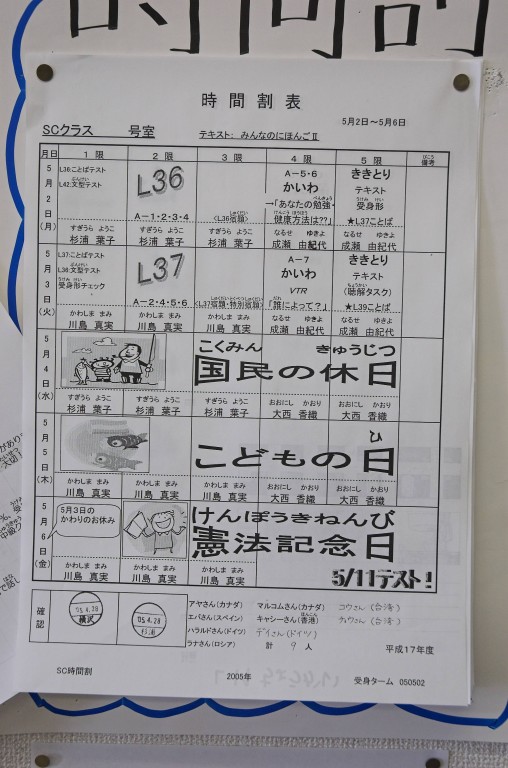 時間割
時間割表
5月2日～5月6日
SCクラス 号室 テキスト: みんなのにほんごⅡ
月日 1限 2限 3限 4限 5限 備考
びこう
5月2日(月)
L36:ことばテスト
ぶんけい
L42:文型テスト
L36
A－1・2・3・4
しゅくだい
〈L36宿題〉
A－5・6
かいわ
べんきょう
→「あなたの勉強・
けんこう ほうほう
健康方法は??」
ききとり
テキスト
うけみけい
受身形
★L37ことば
すぎうら ようこ すぎうら ようこ すぎうら ようこ なるせ ゆきよ なるせ ゆきよ
杉浦 葉子 杉浦 葉子 杉浦 葉子 成瀬 由紀代 成瀬 由紀代
5月3日(火)
L37:ことばテスト
ぶんけい
L36:文型テスト
うけみけい
受身形チェック
L37
A－2・4・5・6
しゅくだい・とくべつしゅくだい
〈L37宿題・特別宿題〉
A－7
かいわ
VTR
だれ
「誰によって？」
ききとり
テキスト
ちょうかい
(聴解タスク)
★L39ことば
かわしま まみ かわしま まみ かわしま まみ なるせ ゆきよ なるせ ゆきよ
川島 真実 川島 真実 川島 真実 成瀬 由紀代 成瀬 由紀代
5月4日(水)
こくみん きゅうじつ
国民の休日
すぎうら ようこ すぎうら ようこ すぎうら ようこ おおにし かおり おおにし かおり
杉浦 葉子 杉浦 葉子 杉浦 葉子 大西 香織 大西 香織
5月5日(木)
ひ
こどもの日
かわしま まみ かわしま まみ かわしま まみ おおにし かおり おおにし かおり
川島 真実 川島 真実 川島 真実 大西 香織 大西 香織
5月6日(金)
5月3日の
かわりのお休み
けんぽうきねんび
憲法記念日
5/11テスト！
かわしま まみ かわしま まみ かわしま まみ
川島 真実 川島 真実 川島 真実
確認
05.4.28
横沢
05.4.28
杉浦
アヤさん(カナダ) マルコムさん(カナダ) コウさん(台湾)
ほんこん
エバさん(スペイン) キャシーさん(香港) チョウさん(台湾)
ハラルドさん(ドイツ) デイさん(ドイツ)
ラナさん(ロシア) 計 9 人
平成17年度
SC時間割 2005年 受身ターム 050502